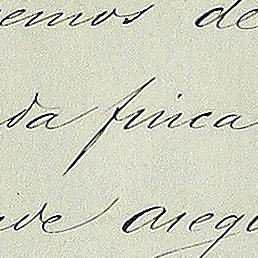 emos de
da finca
de asegu